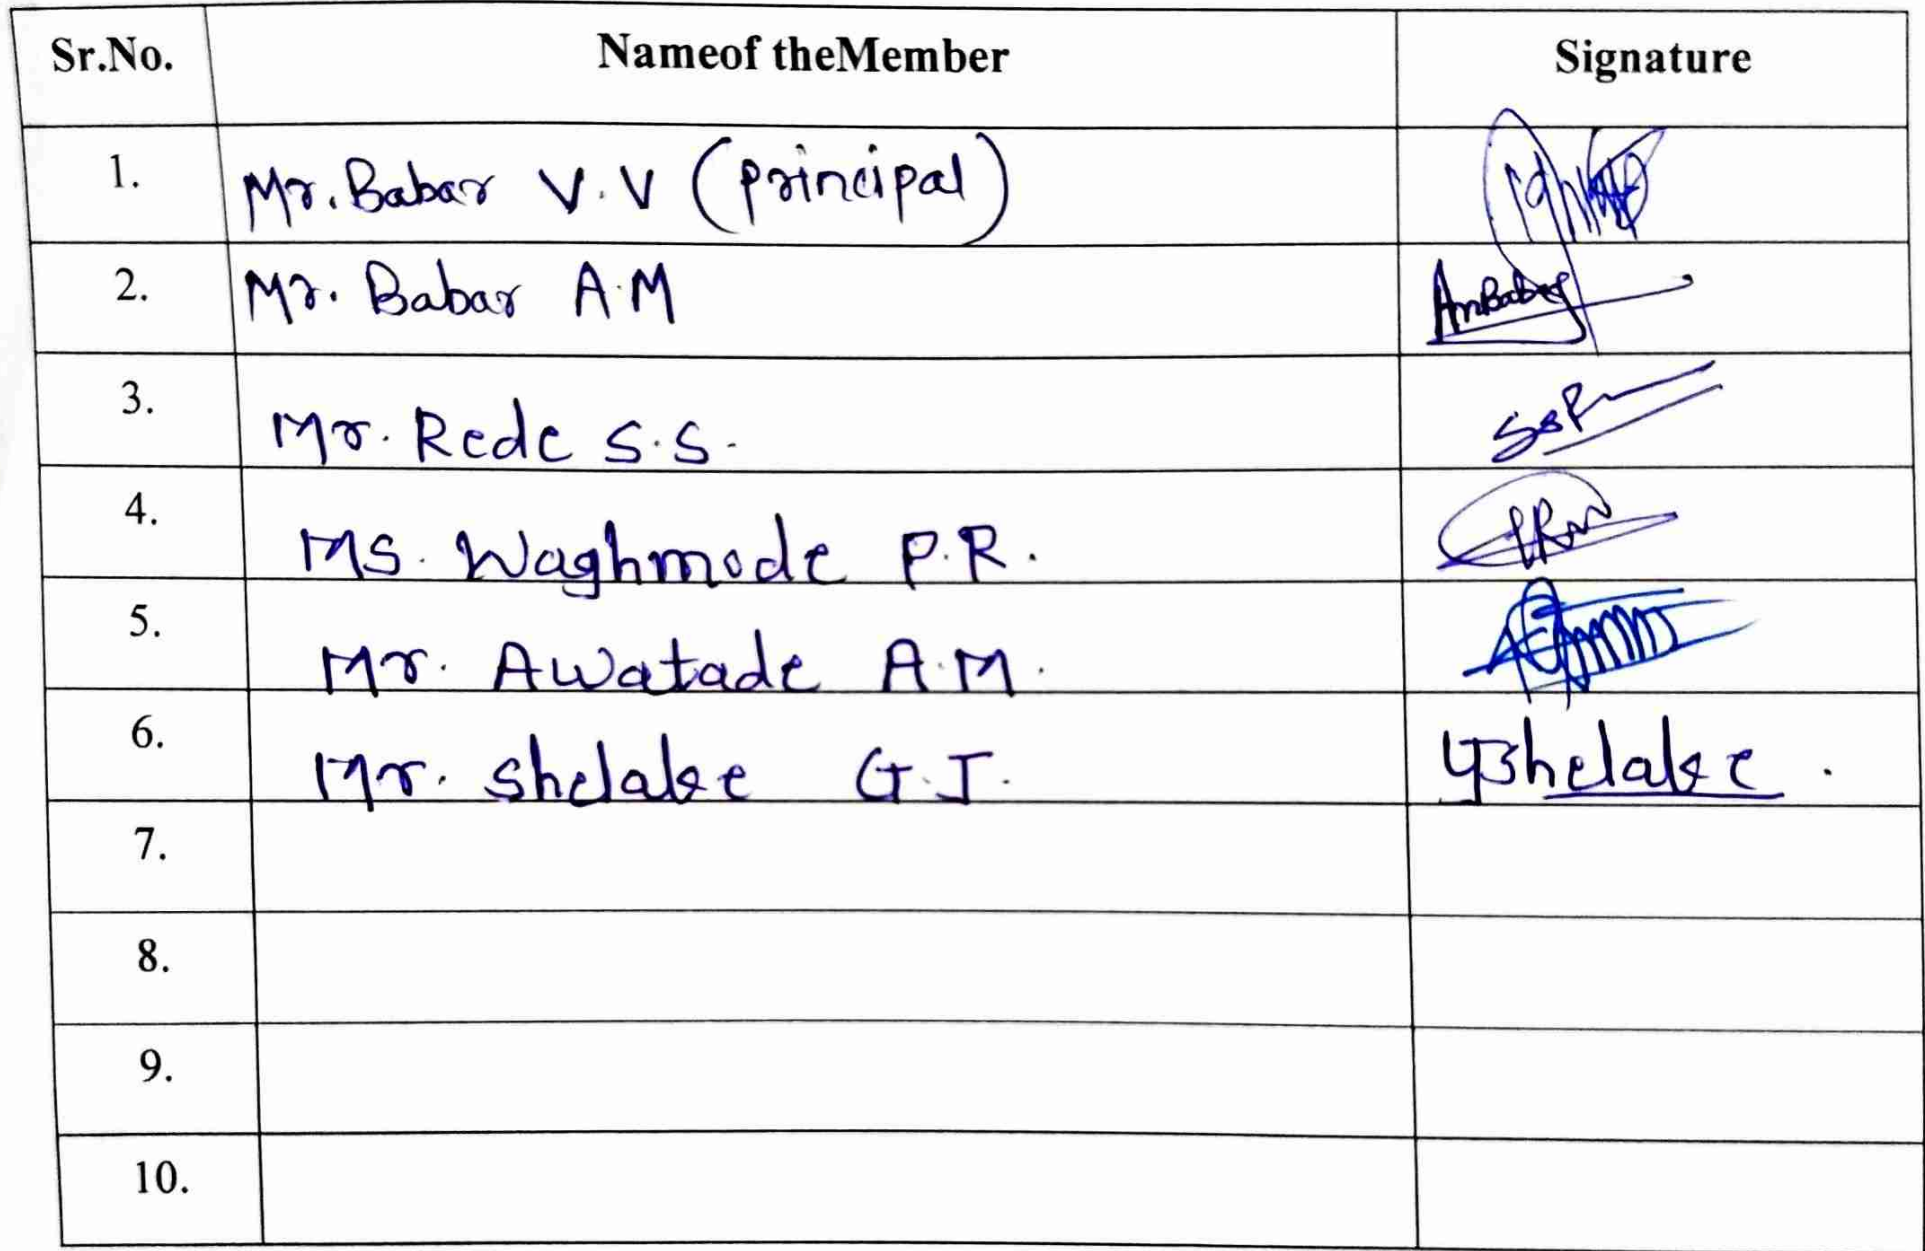 Sr.No. Nameof theMember Signature
1. Mr. Babar V.V (principal)
2. Mr. Babar A.M AmBabar
3. Mr. Rede S.S.
4. Ms. Waghmode P.R.
5. Mr. Awatade A.M.
6. Mr. Shelake G.J. GJShelake.
7.
8.
9.
10.